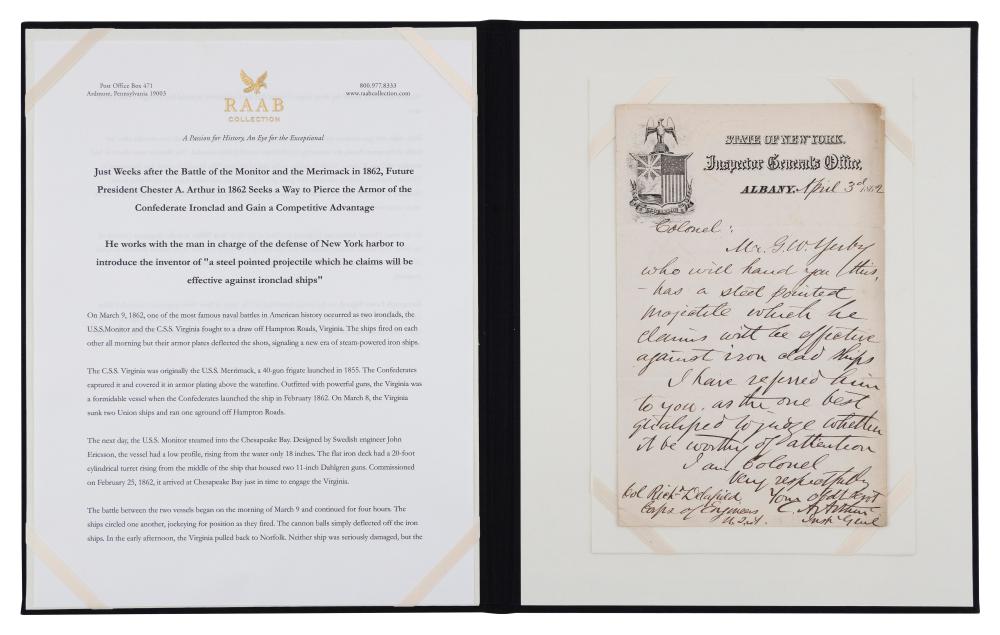 Post Office Box 471
Ardmore, Pennsylvania 19003
RAAB
COLLECTION
800.977.8333
www.raabcollection.com
A Passion for History, An Eye for the Exceptional
Just Weeks after the Battle of the Monitor and the Merimack in 1862, Future
President Chester A. Arthur in 1862 Seeks a Way to Pierce the Armor of the
Confederate Ironclad and Gain a Competitive Advantage
He works with the man in charge of the defense of New York harbor to
introduce the inventor of "a steel pointed projectile which he claims will be
effective against ironclad ships"
On March 9, 1862, one of the most famous naval battles in American history occurred as two ironclads, the
U.S.S.Monitor and the C.S.S. Virginia fought to a draw off Hampton Roads, Virginia. The ships fired on each
other all morning but their armor plates deflected the shots, signaling a new era of steam-powered iron ships.
The C.S.S. Virginia was originally the U.S.S. Merrimack, a 40-gun frigate launched in 1855. The Confederates
captured it and covered it in armor plating above the waterline. Outfitted with powerful guns, the Virginia was
a formidable vessel when the Confederates launched the ship in February 1862. On March 8, the Virginia
sunk two Union ships and ran one aground off Hampton Roads.
The next day, the U.S.S. Monitor steamed into the Chesapeake Bay. Designed by Swedish engineer John
Ericsson, the vessel had a low profile, rising from the water only 18 inches. The flat iron deck had a 20-foot
cylindrical turret rising from the middle of the ship that housed two 11-inch Dahlgren guns. Commissioned
on February 25, 1862, it arrived at Chesapeake Bay just in time to engage the Virginia.
The battle between the two vessels began on the morning of March 9 and continued for four hours. The
ships circled one another, jockeying for position as they fired. The cannon balls simply deflected off the iron
ships. In the early afternoon, the Virginia pulled back to Norfolk. Neither ship was seriously damaged, but the
STATE OF NEW YORK.
Inspector General's Office,
ALBANY, April 3d 1862
Colonel:
Mr. G. W. Yerby
who will hand you this,
- has a steel pointed
projectile which he
claims will be effective
against iron clad ships
I have referred him
to you, as the one best
qualified to judge whether
it be worthy of attention
I am Colonel
Very respectfully
Your obdt Servt
C. A. Arthur
Insp Genl
Col Richd Delafield
Corps of Engineers
U.S.A.